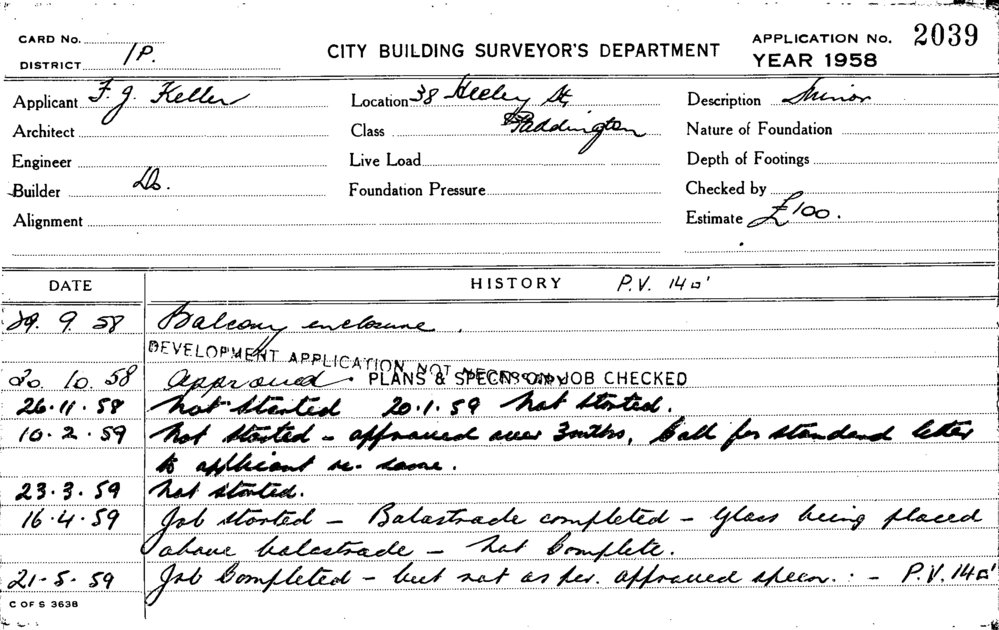 CARD No.
DISTRICT 1P.
CITY BUILDING SURVEYOR'S DEPARTMENT
APPLICATION No. 2039
YEAR 1958
Applicant F. J. Keller
Location 38 Heeley St, Paddington
Description Minor
Architect
Class
Nature of Foundation
Engineer
Live Load
Depth of Footings
Builder Do.
Foundation Pressure
Checked by
Alignment
Estimate £100.
DATE HISTORY P.V. 14□'
29. 9. 58 Balcony enclosure.
DEVELOPMENT APPLICATION NOT NECESSARY
20. 10. 58 Approved. PLANS & SPECNS ON JOB CHECKED
26.11.58 Not started 20.1.59 Not started.
10.2.59 Not started - approved over 3mths, Call for standard letter
to applicant re. same.
23.3.59 Not started.
16.4.59 Job started - Balastrade completed - Glass being placed
above balastrade - Not Complete.
21-5-59 Job Completed - but not as per. approved specn. : - P.V. 14□'
C OF S 3638